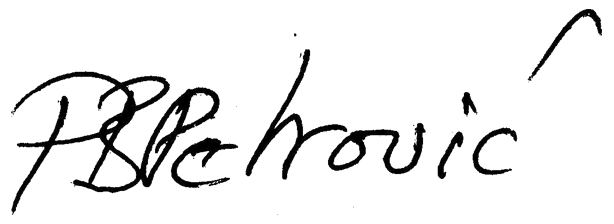 PBPetrović